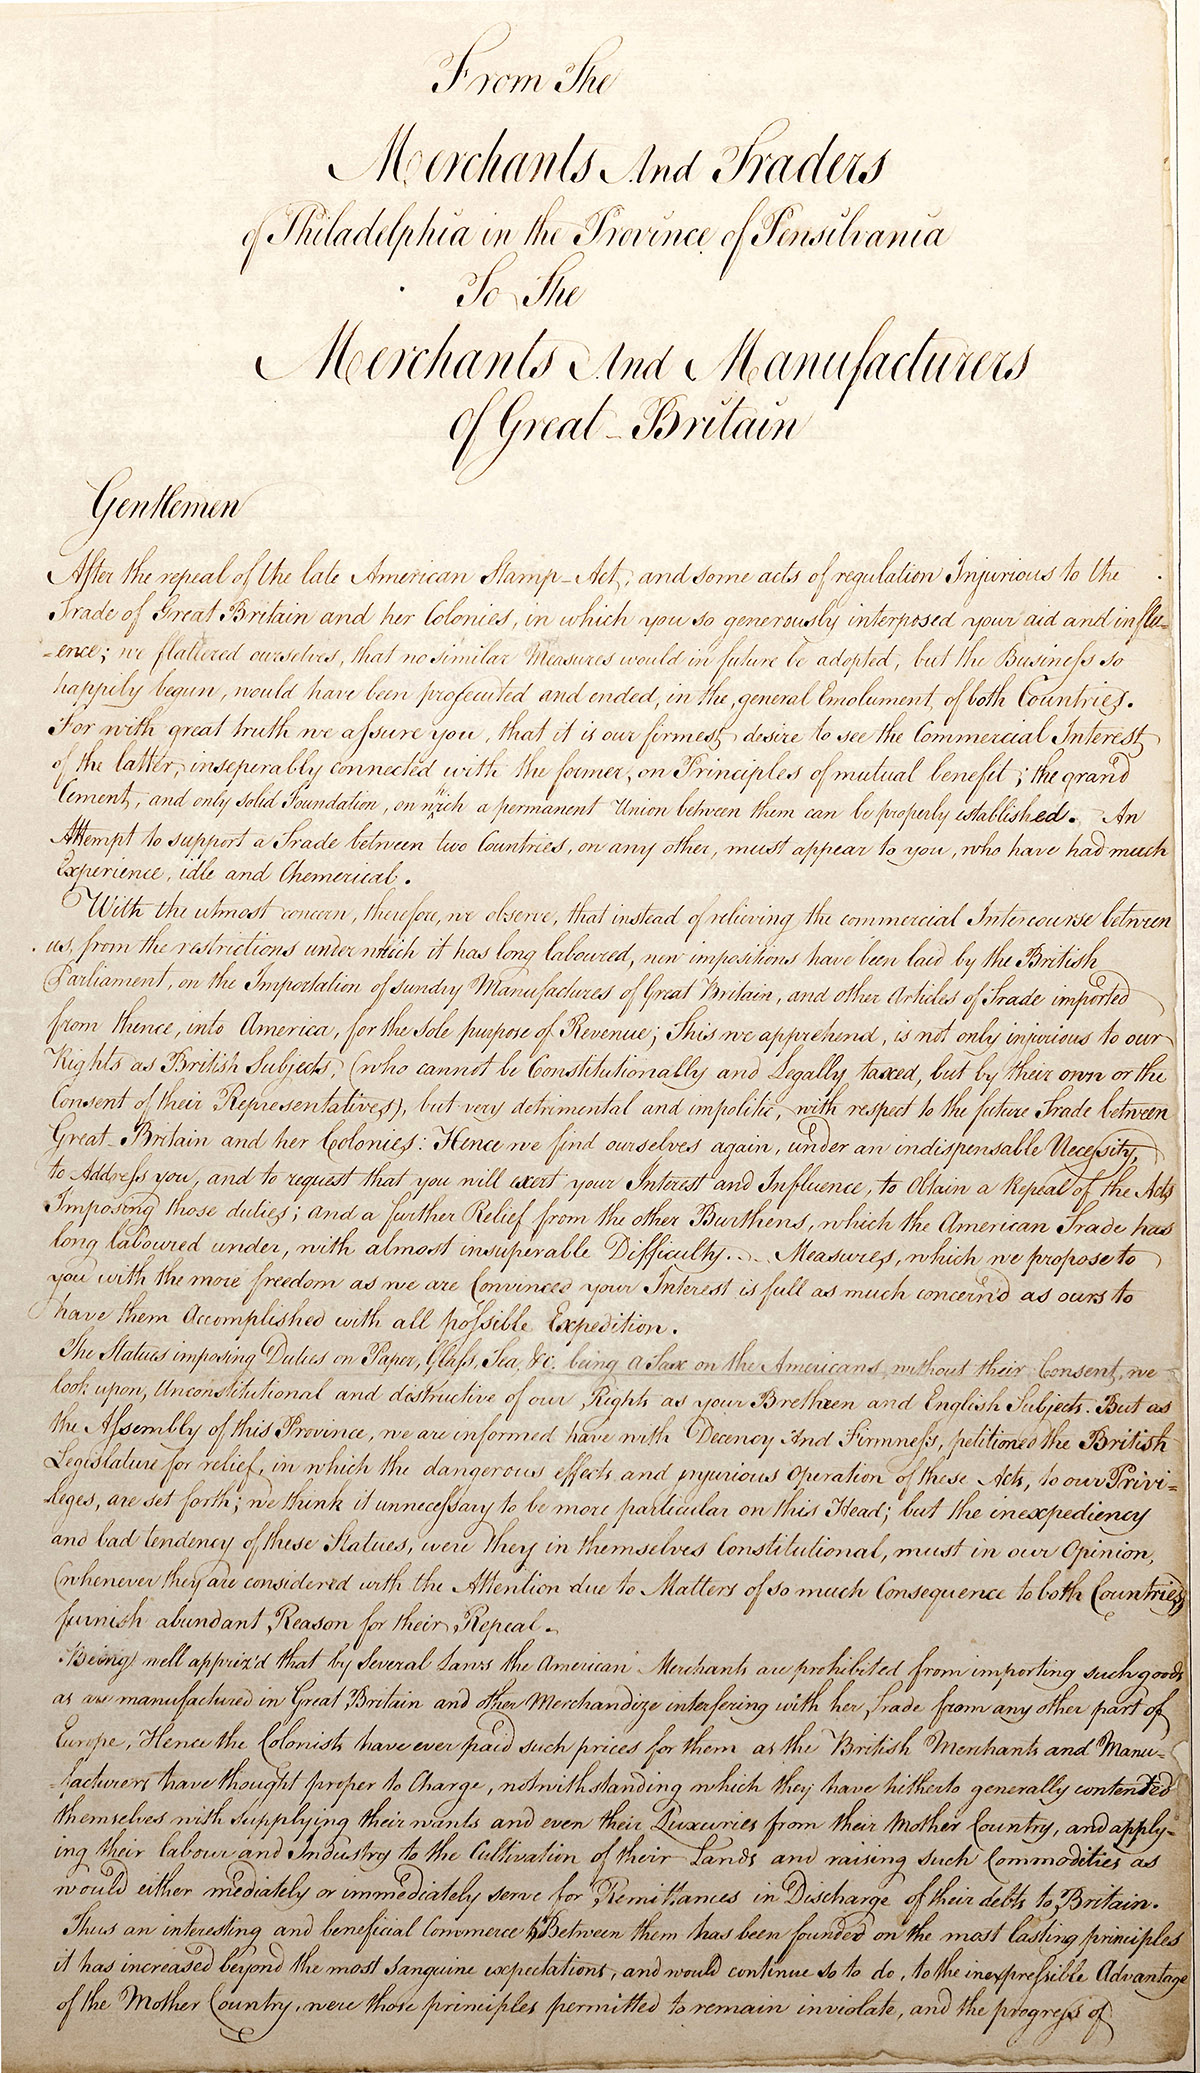 From The
Merchants And Traders
of Philadelphia in the Province of Pensilvania
To The
Merchants And Manufacturers
of Great-Britain
Gentlemen
After the repeal of the late American Stamp-Act, and some acts of regulation Injurious to the
Trade of Great Britain and her Colonies, in which you so generously interposed your aid and influ=
=ence; we flattered ourselves, that no similar Measures would in future be adopted, but the Business so
happily begun, would have been prosecuted and ended, in the, general Emolument, of both Countries.
For with great truth we assure you, that it is our firmest desire to see the Commercial Interest
of the latter, inseperably connected with the former, on Principles of mutual benefit; the grand
Cement, and only solid Foundation, on which a permanent Union between them can be properly established. An
Attempt to support a Trade between two Countries, on any other, must appear to you, who have had much
Experience, idle and Chemerical.
With the utmost concern, therefore, we observe, that instead of relieving the commercial Intercourse between
us, from the restrictions under which it has long laboured, new impositions have been laid by the British
Parliament, on the Importation of sundry Manufactures of Great Britain, and other Articles of Trade imported
from thence, into America, for the sole purpose of Revenue; This we apprehend, is not only injurious to our
Rights as British Subjects, (who cannot be Constitutionally and Legally taxed, but by their own or the
Consent of their Representatives), but very detrimental and impolitic, with respect to the future Trade between
Great-Britain and her Colonies: Hence we find ourselves again, under an indispensable Necessity,
to Address you, and to request that you will exert your Interest and Influence, to Obtain a Repeal of the Acts
Imposing those duties; and a further Relief from the other Burthens, which the American Trade has
long laboured under, with almost insuperable Difficulty. Measures, which we propose to
you with the more freedom as we are Convinced your Interest is full as much concern'd as ours to
have them Accomplished with all possible Expedition.
The Statues imposing Duties on Paper, Glass, Tea, &c. being a Tax on the Americans, without their Consent, we
look upon, Unconstitutional and distructive of our Rights as your Brethren and English Subjects. But as
the Assembly of this Province, we are informed have with Decency And Firmness, petitioned the British
Legislature for relief, in which the dangerous effects and injurious Operation of these Acts, to our Privi=
=leges, are set forth; we think it unnecessary to be more particular on this Head; but the inexpediency
and bad tendency of these Statues, were they in themselves Constitutional, must in our Opinion,
(whenever they are considered with the Attention due to Matters of so much Consequence to both Countries)
furnish abundant Reason for their Repeal.
Being well appriz'd that by several Laws the American Merchants are prohibited from importing such goods
as are manufactured in Great Britain and other Merchandize interfering with her Trade from any other part of
Europe, Hence the Colonists have ever paid such prices for them as the British Merchants and Manu=
=facturers have thought proper to Charge, notwithstanding which they have hitherto generally contented
themselves with supplying their wants and even their Luxuries from their Mother Country, and apply=
ing their labour and Industry to the Cultivation of their Lands and raising such Commodities as
would either mediately or immediately serve for Remittances in Discharge of their debts to Britain.
Thus an interesting and beneficial Commerce Between them has been founded on the most lasting principles
it has increased beyond the most sanguine expectations, and would continue so to do, to the inexpressible Advantage
of the Mother Country, were those principles permitted to remain inviolate, and the progress of